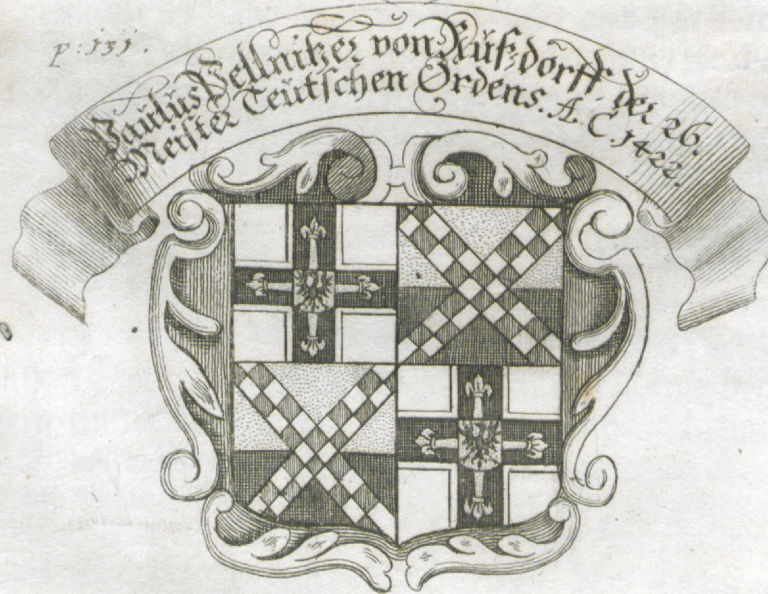 p: 131.
Paulus Pellnitzer von Rüßdorff, der 26.
Meister Teütschen Ordens. A. C. 1422.